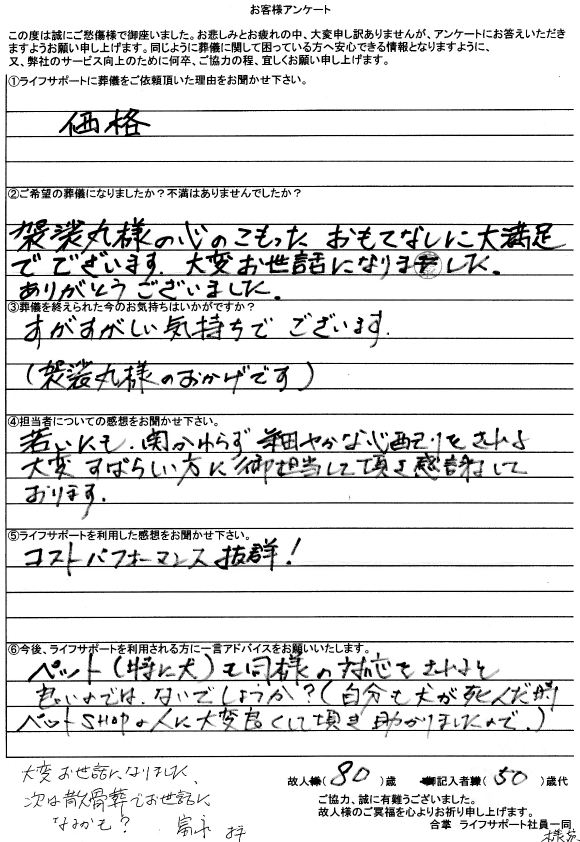 お客様アンケート
この度は誠にご愁傷様で御座いました。お悲しみとお疲れの中、大変申し訳ありませんが、アンケートにお答えいただき
ますようお願い申し上げます。同じように葬儀に関して困っている方へ安心できる情報となりますように、
又、弊社のサービス向上のために何卒、ご協力の程、宜しくお願い申し上げます。
①ライフサポートに葬儀をご依頼頂いた理由をお聞かせ下さい。
価格
②ご希望の葬儀になりましたか？不満はありませんでしたか？
袈裟丸様の心のこもった おもてなしに大満足
でございます。大変お世話になりました。
ありがとうございました。
③葬儀を終えられた今のお気持ちはいかがですか？
すがすがしい気持ちでございます。
（袈裟丸様のおかげです）
④担当者についての感想をお聞かせ下さい。
若いにも関わらず細やかな心配りをされ
大変すばらしい方に御担当して頂き感謝して
おります。
⑤ライフサポートを利用した感想をお聞かせ下さい。
コストパフォーマンス抜群！
⑥今後、ライフサポートを利用される方に一言アドバイスをお願いいたします。
ペット（特に犬）も同様の対応をされると
良いのでは、ないでしょうか？（自分も犬が死んだ折り
ペットSHOPの人に大変良くして頂き助かりましたので。）
大変お世話になりました、
次は散骨葬でお世話に
なるかも？ 富永 拝
故人様（80）歳 御記入者様（50）歳代
ご協力、誠に有難うございました。
故人様のご冥福を心よりお祈り申し上げます。
合掌 ライフサポート社員一同
様